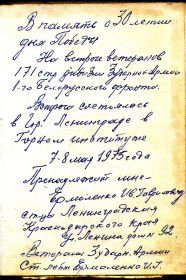 В память о 30летии
дня Победы
На встрече ветеранов
171 стр дивизии 3 ударной армии
1-го Белорусского фронта.
Встреча состоялась
в гор. Ленинграде в
Горном институте
7-8 мая 1975 года
Принадлежит мне-
Ермоленко Ив. Гавриловичу
стца Ленинградская
Краснодарского Края
ул. Ленина дом 92
Ветеран 3 Ударн. Армии
Ст. лейт Ермоленко И.Г.